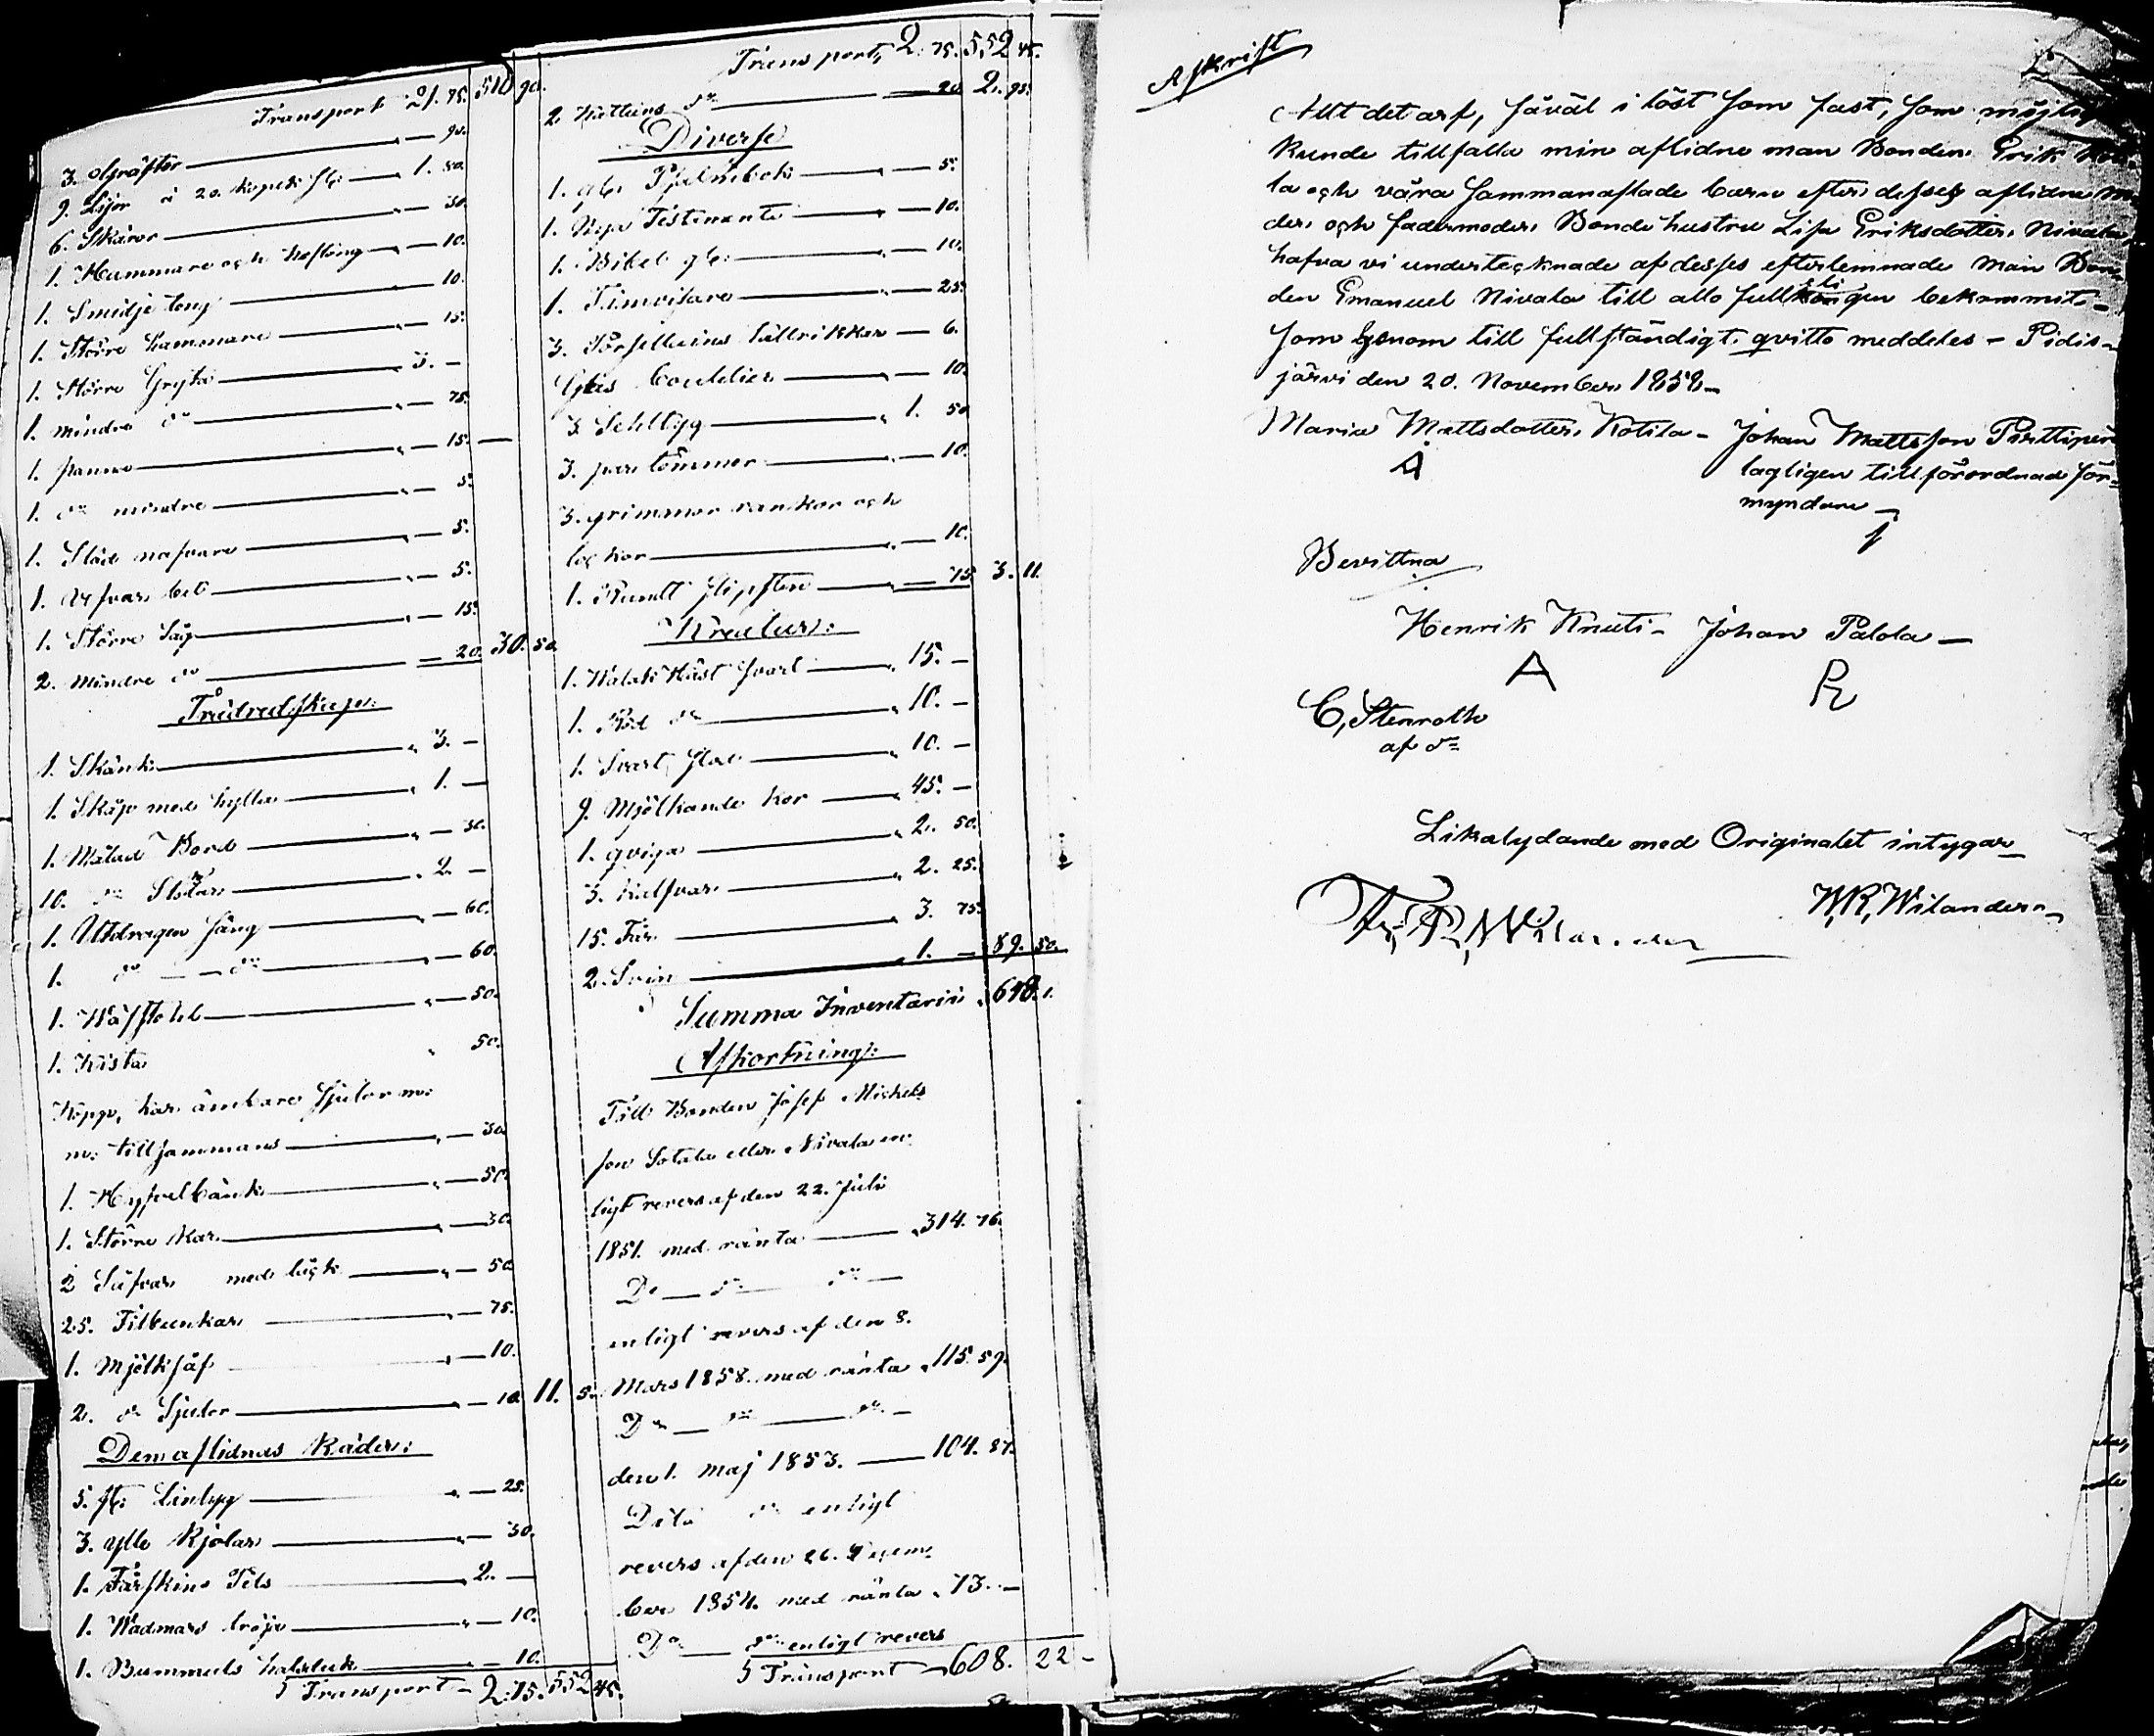 Transport 21. 75. 510 90.
3. Gräftor — 90.
9. Lijor à 20. kopek st: — 1. 80.
6. Skäror — 30.
1. Hammare och hoftång — 10.
1. Smidje tong — 10.
1. Större hammare — 15.
1. Större Gryta — 3. —
1. mindre do — 75.
1. panna — 15. —
1. do mindre — 5.
1. Slöd nafvare — 5.
1. Nafvar bet — 5.
1. Större Såg — 15.
2. mindre do — 20. 30. 50.
Trädredskap:
1. Skänk — 3. —
1. Skåp med hylla — 1. —
1. Målad Bord — 30.
10. do Stolar — 2. —
1. Utdragen säng — 60.
1. do — do — 60.
1. Wäfstohl — 50.
1. Kista 50.
Koppe, kar ämbare Sjulor m:
m: tillsammans — 30.
1. Hyfvelbänk — 50.
1. Större kar — 30.
2 Såfvar med läck — 50.
25. Tilbunkar — 75.
1. Mjölksåf — 10.
2. do Sjulor — 10. 11. 5.
Dem aflidnas Kläder:
5. st: Lintyg — 25.
3. ylle Kjolar — 30.
1. Fårskins Fels — 2. —
1. Wadmars tröja — 10.
1. Bummuls halsduk — 10.
Transport — 2. 75. 552 45.
Transport, 2. 75. 552 45.
2 do — 20. 2. 95.
Diverse
1. gl: Psalmbok — 5.
1. Nya Testimente — 10.
1. Bibel gl: — 10.
1. Timvisare — 25.
3. Porsellains tallrikkar — 6.
Glas boutelier — 10.
3 Sehltyg — 1. 50
3. par tömmar — 10.
3. grimmor rankor och
lockor — 10.
1. Rundt slipsten — 75 3. 11.
Kreatur:
1. Walak Häst svart — 15. —
1. Röd do — 10. —
1. Svart stod — 10. —
9. Mjölkande kor — 45. —
1. qviga — 2. 50.
3. kalfvar — 2. 25.
15. Får — 3. 75.
2. Svin — 1. — 89. 50.
Summa Inventarii 648. 1.
Afkortning:
Till Bonden Josef Mickels
son Sotala eller Nivala en
ligt revers af den 22. Juli
1851. med ränta — 314. 76.
Do — do — do —
enligt revers af den 8.
Mars 1858. med ränta 115. 59.
Do — do — do —
den 1. maj 1853. — 104. 87.
Dito do enligt
revers af den 26. Decem:
ber 1854. med ränta 73. —
Do — do enligt revers
Transport — 608. 22 —
Afskrift
Allt det arf, såväl i löst som fast, som
kunde tillfalla min aflidne man Bonden Erik
la och våra sammanaflade barn efter dessas aflidna
der och fadermoder Bonde hustru Lisa Eriksdotter Nivala
hafva vi undertecknade af dessess efterlemnade man Bon
den Emanuel Nivala till alla fullkomligen bekommit —
som genom till fullständigt qvitto meddeles — Pidis-
järvi den 20. November 1858 —
Maria Mattsdotter Kotila — Johan Mattsson Pirttiperä
lagligen tillförordnad för-
myndare —
Bevittna
Henrik Knuti — Johan Palola —
C, Stenroth
af do
Likalydande med Originalet intygar —
W, R, Wilander